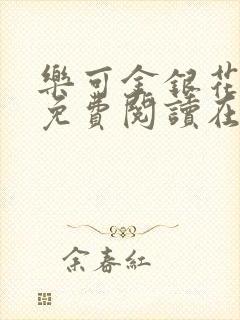 樂可金銀花
免費閱讀在
余春紅